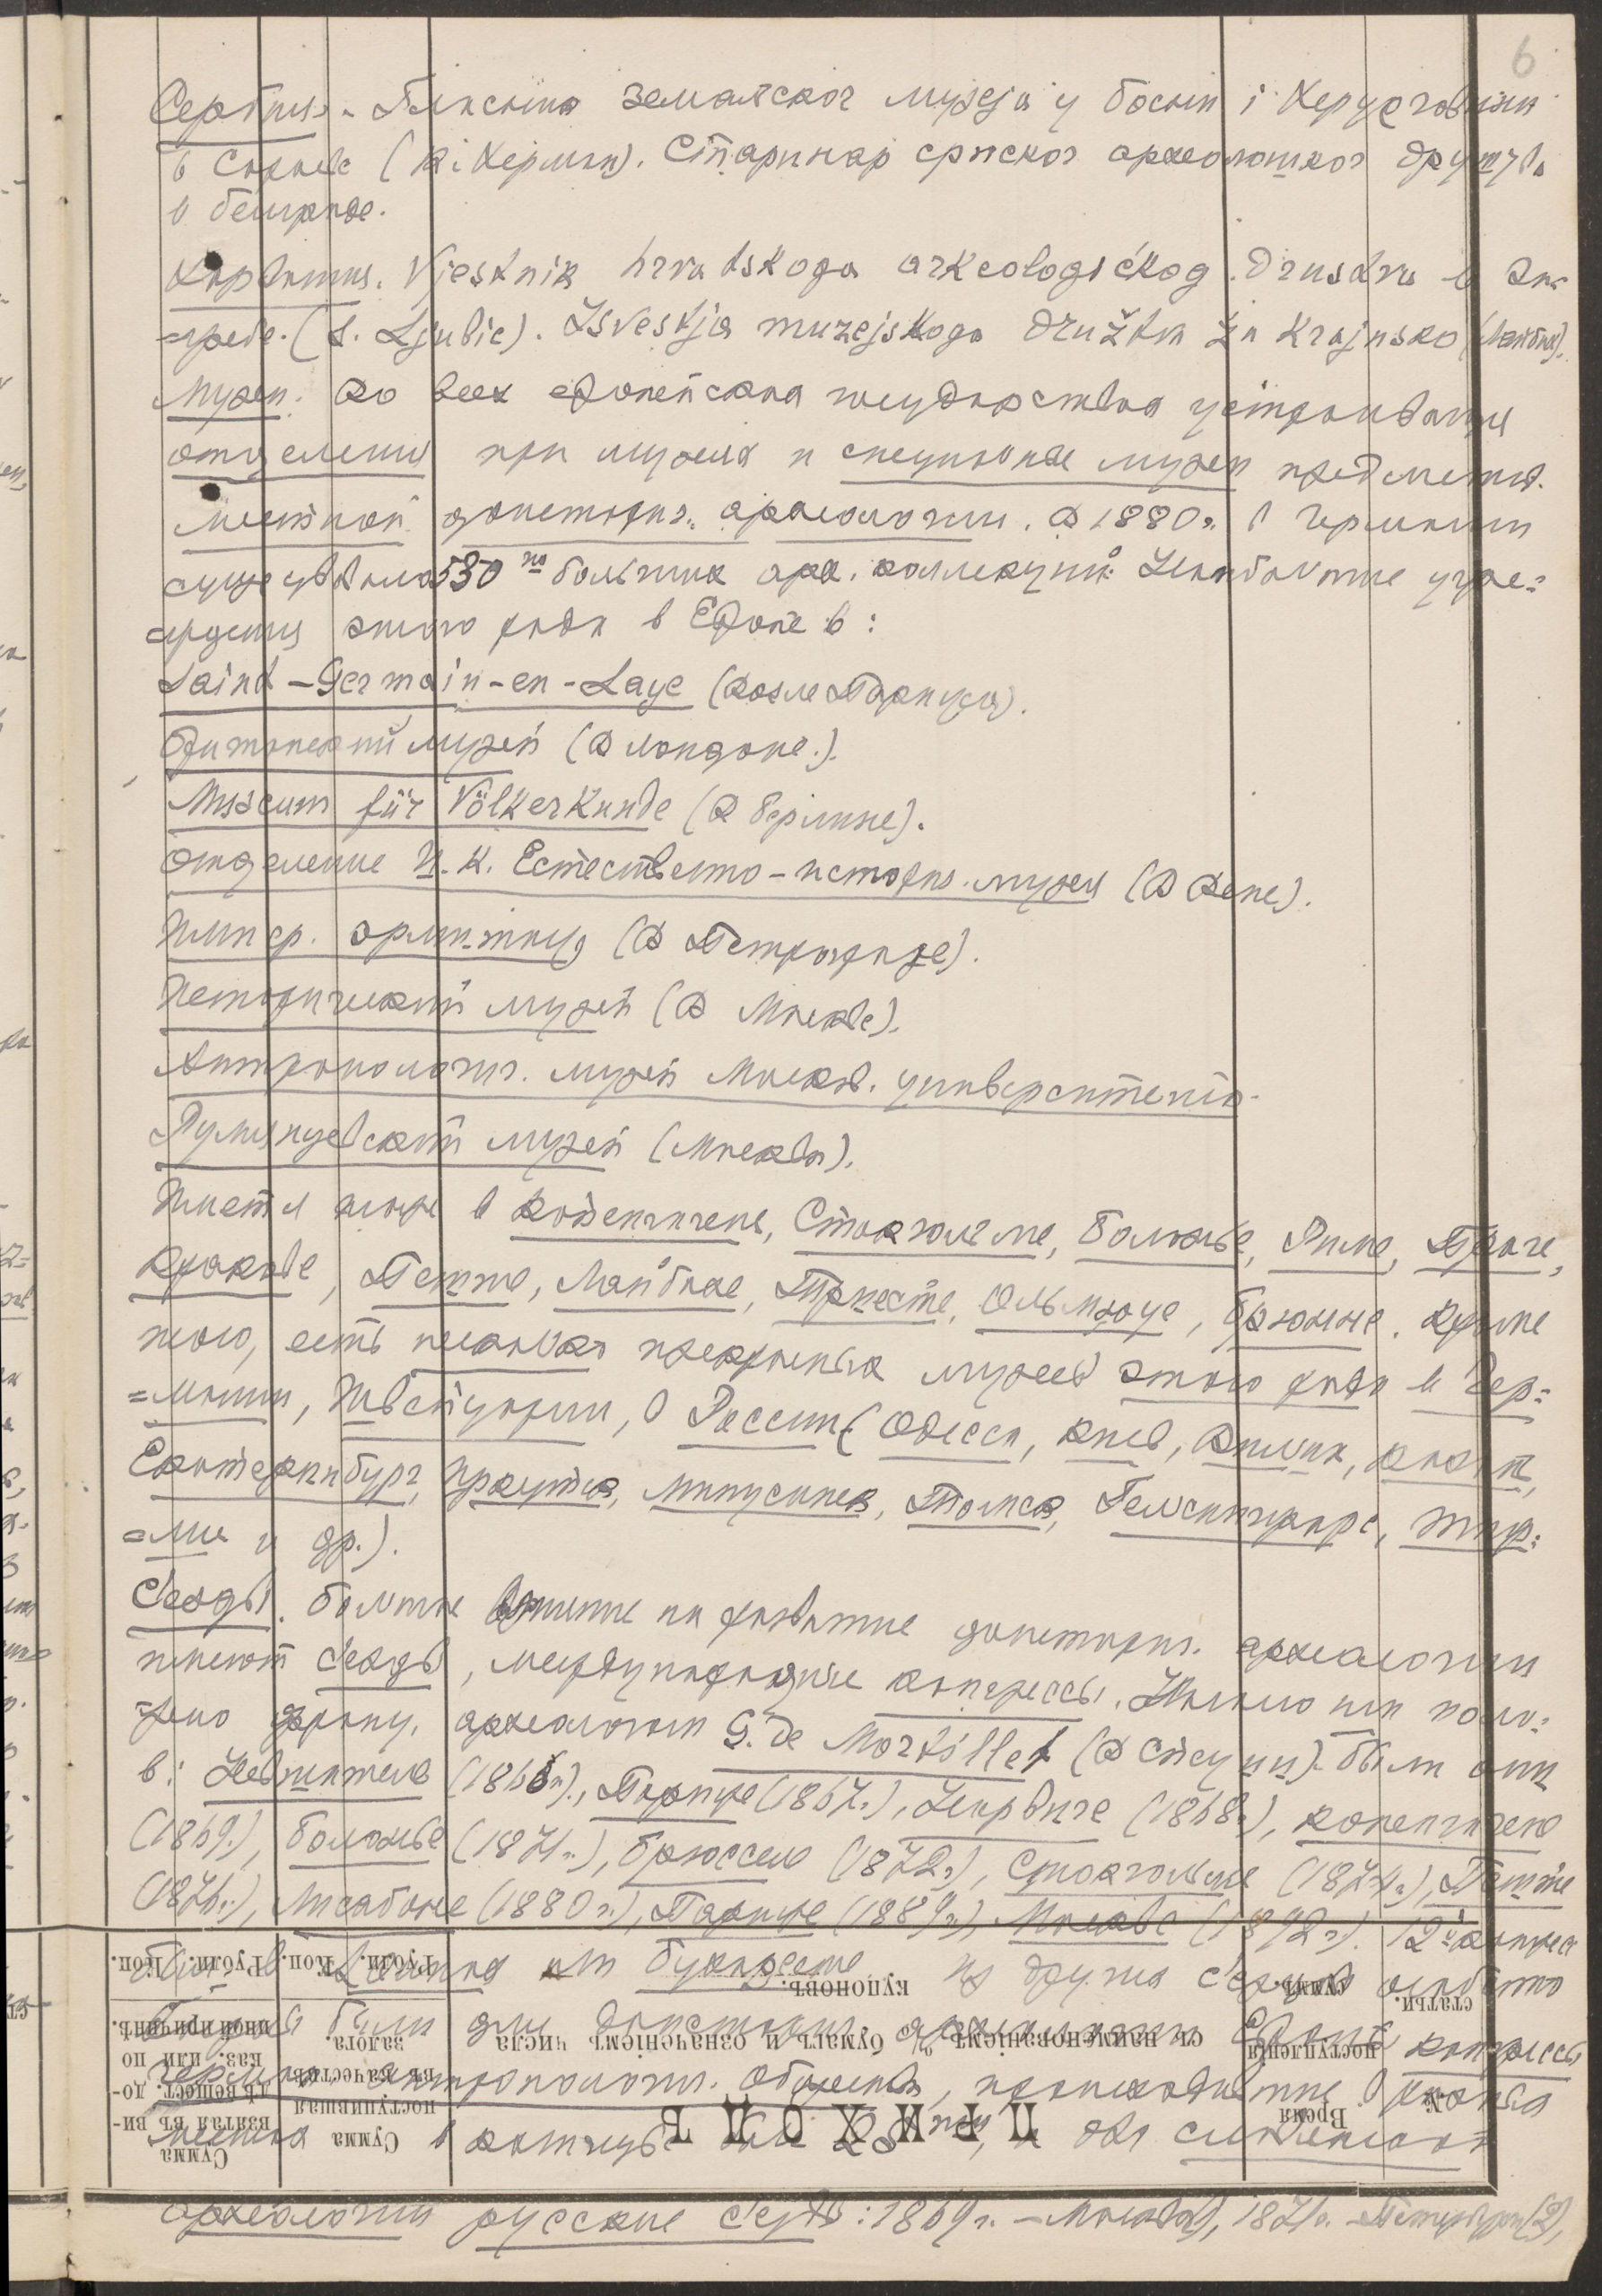 6
Сербия. - Гласник земаљског музеја у Босни і Херцеговини
в Сараеве (К. Херман). Старинар српског археолошког друштва
в Белграде.
Хорватия. Vjestnik hrvatskoga arkeologičkog društva в За-
=гребе. (S. Ljubic). Isvestja muzejskoga društva za Krajnsko (Лайбах).
Музеи. Во всех европейских государствах устраивались
отделения при музеях и специальные музеи предметов
местной доисторич. археологии. В 1880 г. в Германии
существовало 530 больших арх. коллекций. Наиболее учре=
ждения этого рода в Европе в:
Saint-Germain-en-Laye (возле Парижа).
Британский музей (В Лондоне.).
Museum für Völkerkunde (В Берлине).
Отделение И. К. Естественно-историч. музея (В Вене).
Импер. эрмитаж (В Петрограде).
Исторический музей (В Москве).
Антропологич. музей Москов. университета.
Румянцевский музей (Москва).
Имеются также в Копенгагене, Стокгольме, Болонье, Риме, Праге,
Кракове, Пеште, Лайбахе, Триесте, Ольмюце, Брюнне. Кроме
того, есть несколько прекрасных музеев этого рода в Гер=
=мании, Швейцарии, в России (Одесса, Киев, Вильна, Казань,
Екатеринбург, Иркутск, Минусинск, Томск, Гельсингфорс,
и др.).
Съезды. Большое влияние на развитие доисторич. археологии
имеют съезды, международные конгрессы. Начало им поло=
жено франц. археологом G. de Mortillet (В Специи). Были они
в: Невшателе (1866 г.), Париже (1867 г.), Норвиче (1868 г.), Копенгагене
(1869.), Болонье (1871 г.), Брюсселе (1872 г.), Стокгольме (1874 г.), Пеште
(1876 г.), Лисабоне (1880 г.), Париже (1889 г.), Москве (1892 г.). 12й конгресс
был в или Бухаресте. Из других съездов особенно
были для доисторич. археологии конгрессы
антропологич. общества, происходившие в разных
местах в , а для славянской
археологии русские съезды: 1869 г. - Москва (1), 1871 г. - Петербург (2),
ПРИХОДЪ
№ статьи.
Время поступленія суммъ.
съ наименованіемъ бумагъ и означеніемъ числа купоновъ.
Сумма поступившая въ качествѣ залога.
Рубли. Коп.
Сумма взятая въ ви- дѣ вещест. до- каз. или по иной причинѣ.
Рубли. Коп.